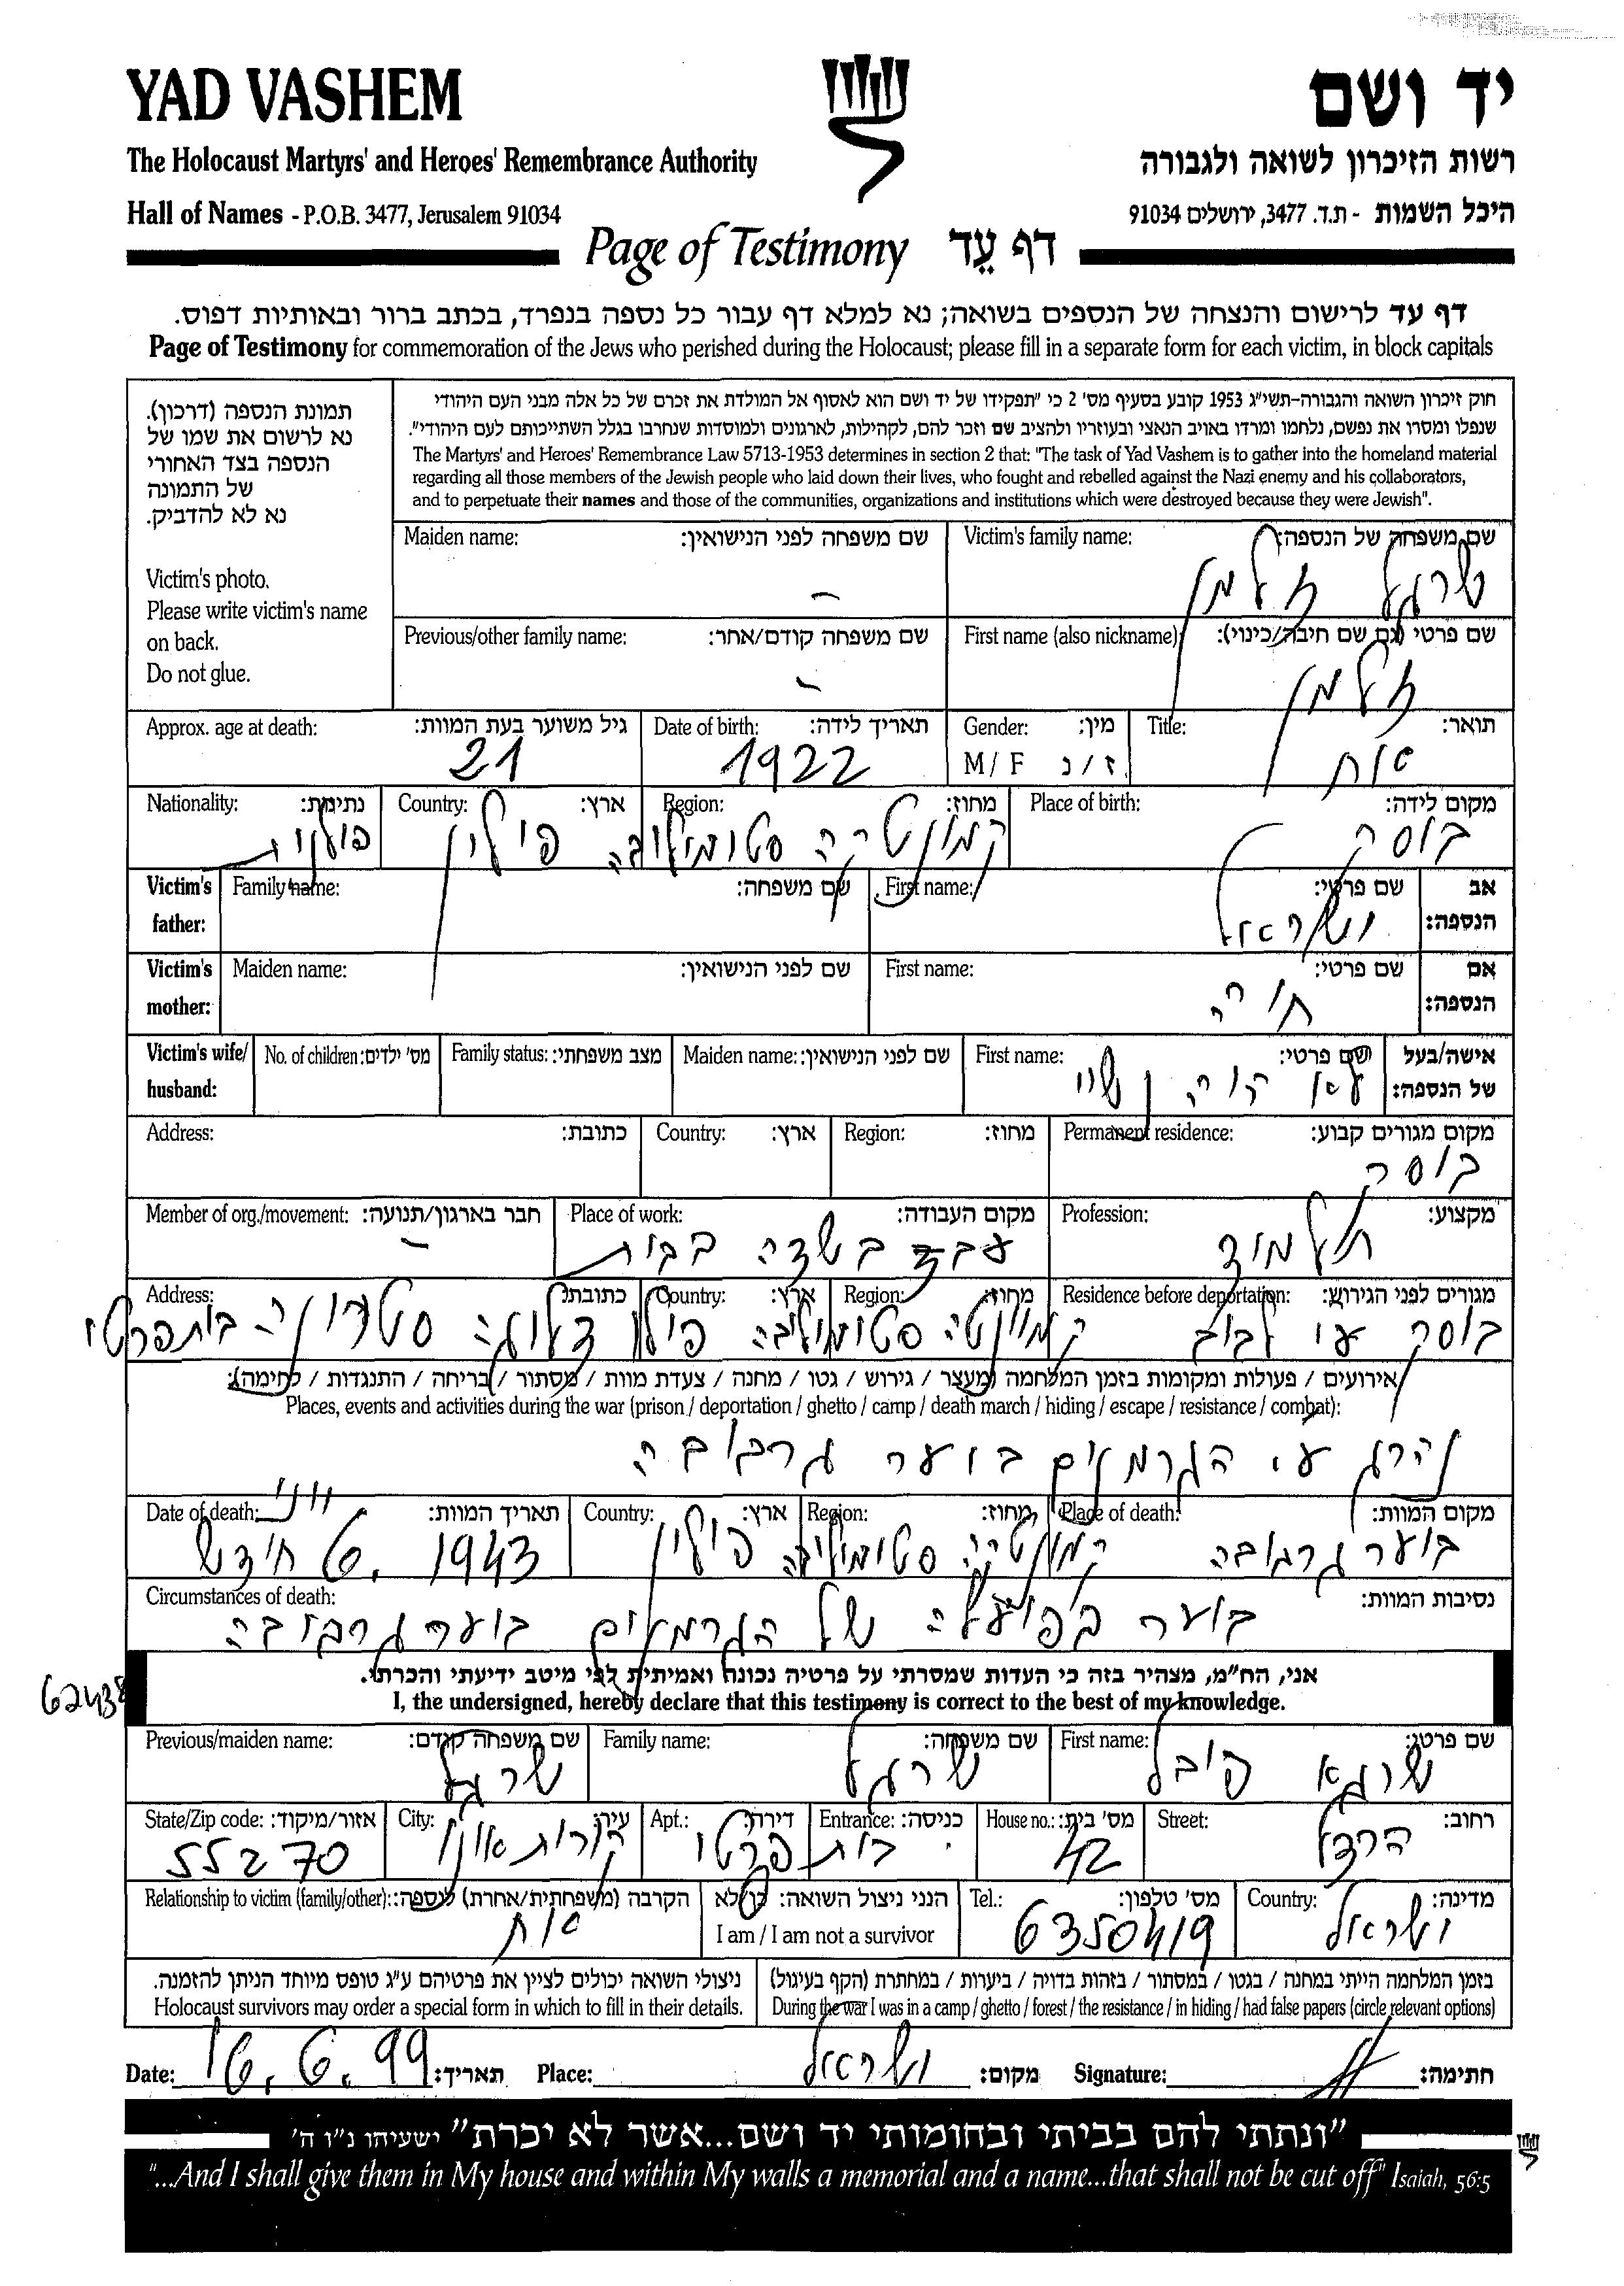 YAD VASHEM
יד ושם
The Holocaust Martyrs' and Heroes' Remembrance Authority
רשות הזיכרון לשואה ולגבורה
Hall of Names - P.O.B. 3477, Jerusalem 91034
היכל השמות - ת.ד. 3477, ירושלים 91034
Page of Testimony דף עֵד
דף עד לרישום והנצחה של הנספים בשואה; נא למלא דף עבור כל נספה בנפרד, בכתב ברור ובאותיות דפוס.
Page of Testimony for commemoration of the Jews who perished during the Holocaust; please fill in a separate form for each victim, in block capitals
תמונת הנספה (דרכון).
נא לרשום את שמו של
הנספה בצד האחורי
של התמונה
נא לא להדביק.
Victim's photo.
Please write victim's name
on back.
Do not glue.
חוק זיכרון השואה והגבורה-תשי"ג 1953 קובע בסעיף מס' 2 כי "תפקידו של יד ושם הוא לאסוף אל המולדת את זכרם של כל אלה מבני העם היהודי
שנפלו ומסרו את נפשם, נלחמו ומרדו באויב הנאצי ובעוזריו ולהציב שם וזכר להם, לקהילות, לארגונים ולמוסדות שנחרבו בגלל השתייכותם לעם היהודי".
The Martyrs' and Heroes' Remembrance Law 5713-1953 determines in section 2 that: "The task of Yad Vashem is to gather into the homeland material
regarding all those members of the Jewish people who laid down their lives, who fought and rebelled against the Nazi enemy and his collaborators,
and to perpetuate their names and those of the communities, organizations and institutions which were destroyed because they were Jewish".
שם משפחה של הנספה: Victim's family name: שם משפחה לפני הנישואין: Maiden name:
שרגל זלמן -
שם פרטי (גם שם חיבה/כינוי): First name (also nickname): שם משפחה קודם/אחר: Previous/other family name:
זלמן -
תואר: Title: מין: Gender: תאריך לידה: Date of birth: גיל משוער בעת המוות: Approx. age at death:
אח ז / נ M / F 1922 21
מקום לידה: Place of birth: מחוז: Region: ארץ: Country: נתינות: Nationality:
בוסק פולין פולנית
אב הנספה: שם פרטי: First name: שם משפחה: Family name: Victim's father:
ישראל
אם הנספה: שם פרטי: First name: שם לפני הנישואין: Maiden name: Victim's mother:
חיה
אישה/בעל של הנספה: שם פרטי: First name: שם לפני הנישואין: Maiden name: מצב משפחתי: Family status: מס' ילדים: No. of children: Victim's wife/ husband:
לא היה נשוי
מקום מגורים קבוע: Permanent residence: מחוז: Region: ארץ: Country: כתובת: Address:
בוסק
מקצוע: Profession: מקום העבודה: Place of work: חבר בארגון/תנועה: Member of org./movement:
תלמיד עבד בשדה בבית -
מגורים לפני הגירוש: Residence before deportation: מחוז: Region: ארץ: Country: כתובת: Address:
בוסק פולין בית פרטי
אירועים / פעולות ומקומות בזמן המלחמה (מעצר / גירוש / גטו / מחנה / צעדת מוות / מסתור / בריחה / התנגדות / לחימה):
Places, events and activities during the war (prison / deportation / ghetto / camp / death march / hiding / escape / resistance / combat):
נהרג ע י הגרמנים ביער
מקום המוות: Place of death: מחוז: Region: ארץ: Country: תאריך המוות: Date of death:
ביער פולין 1943 6 חודש יוני
נסיבות המוות: Circumstances of death:
ביער בפעולה של הגרמנים ביער
אני, הח"מ, מצהיר בזה כי העדות שמסרתי על פרטיה נכונה ואמיתית לפי מיטב ידיעתי והכרתי.
I, the undersigned, hereby declare that this testimony is correct to the best of my knowledge.
62438
שם פרטי: First name: שם משפחה: Family name: שם משפחה קודם: Previous/maiden name:
שרגא פיבל שרגל שרגל
רחוב: Street: מס' בית: House no.: כניסה: Entrance: דירה: Apt.: עיר: City: אזור/מיקוד: State/Zip code:
הרצל 42 בית פרטי קרית אונו 55270
מדינה: Country: מס' טלפון: Tel.: הנני ניצול השואה: כן/לא הקרבה (משפחתית/אחרת) לנספה: Relationship to victim (family/other):
ישראל 6350419 I am / I am not a survivor אח
בזמן המלחמה הייתי במחנה / בגטו / במסתור / בזהות בדויה / ביערות / במחתרת (הקף בעיגול)
During the war I was in a camp / ghetto / forest / the resistance / in hiding / had false papers (circle relevant options)
ניצולי השואה יכולים לציין את פרטיהם ע"ג טופס מיוחד הניתן להזמנה.
Holocaust survivors may order a special form in which to fill in their details.
חתימה: Signature: מקום: ישראל Place: תאריך: 16.6.99 Date:
"ונתתי להם בביתי ובחומותי יד ושם...אשר לא יכרת" ישעיהו נ"ו ה'
"...And I shall give them in My house and within My walls a memorial and a name...that shall not be cut off" Isaiah, 56:5